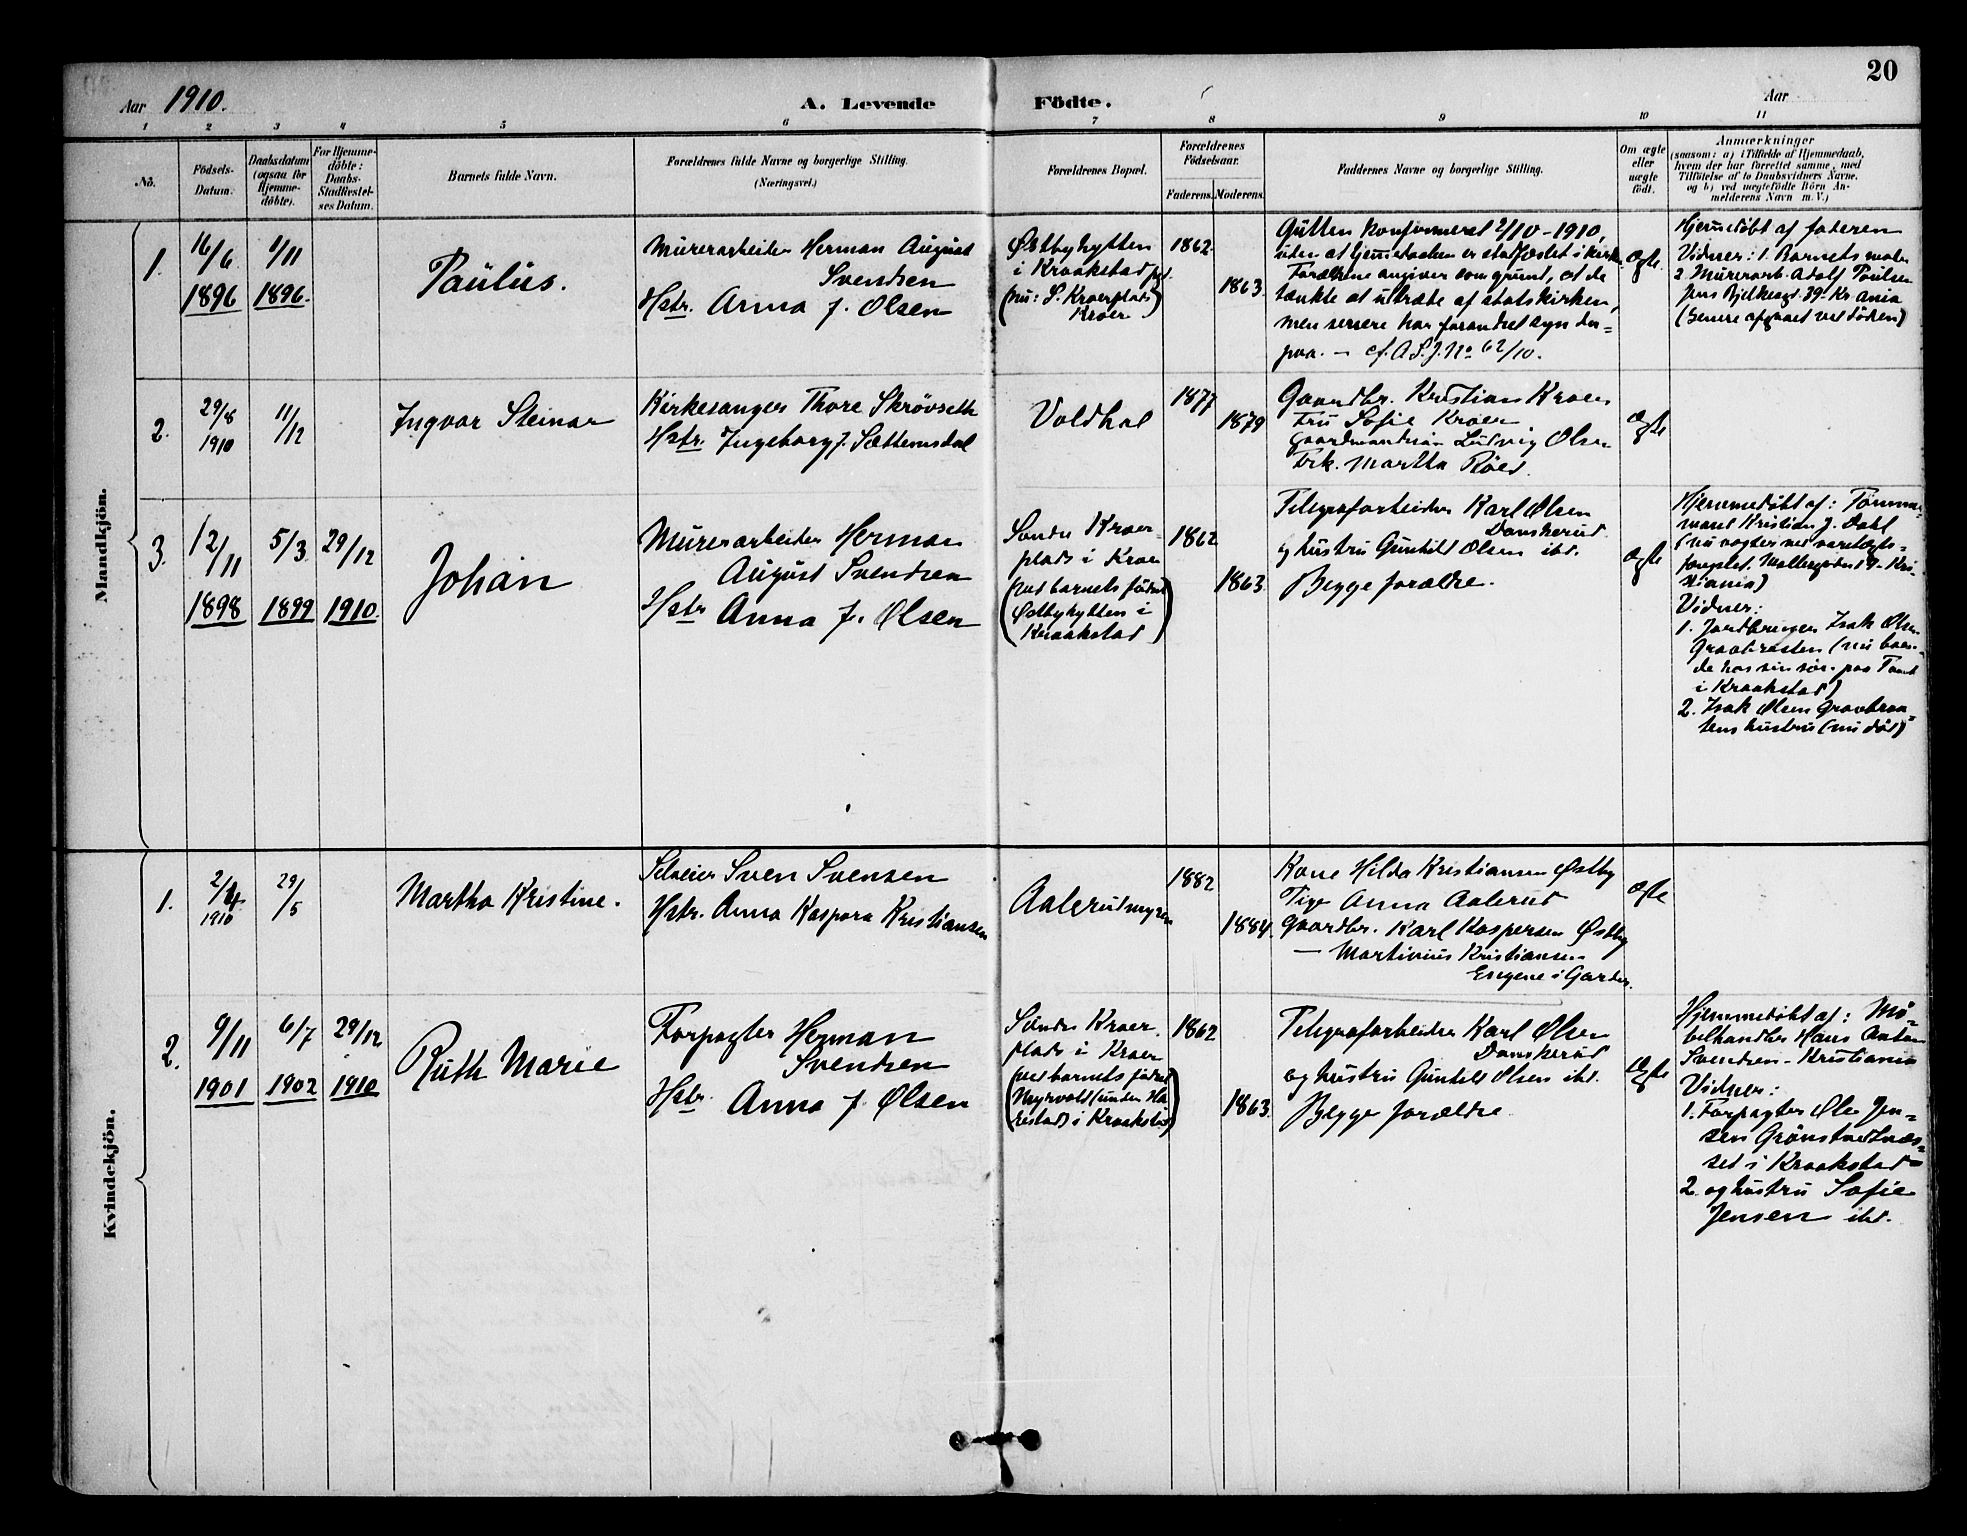 20
Aar 1910.
A. Levende Födte.
Aar
1 2 3 4 5 6 7 8 9 10 11
No.
Födsels-
Datum.
Daabsdatum
(ogsaa for
Hjemme-
döbte).
For Hjemme-
döbte:
Daabs-
Stadfæstel-
ses Datum.
Barnets fulde Navn.
Forældrenes fulde Navne og borgerlige Stilling.
(Næringsvei.)
Forældrenes Bopæl.
Forældrenes
Födselsaar.
Faderens. Moderens.
Faddernes Navne og borgerlige Stilling.
Om ægte
eller
uægte
födt.
Anmærkninger
(saasom: a) i Tilfælde af Hjemmedaab,
hvem der har forrettet samme, med
Tilföielse af to Daabsvidners Navne,
og b) ved uægtefödte Börn An-
melderens Navn m. V.)
Mandkjön.
1.
16/6
1896
1/11
1896.
Paulus.
Murerarbeider Herman August
Svendsen
Hstr. Anna J. Olsen
Østbyhytten
i Kraakstad pgt.
(nu: S. Kroerplads
Kroer)
1862
1863.
Gutten konfirmeret 2/10 - 1910,
uten at hjemmedaaben er stadfæstet i kirk.
Forældrene angiver som grund, at de
tænkte at utræte af statskirken,
men senere har forandret syn der=
paa. - cf. A.S.J. No 62/10.
ægte.
Hjemmedøbt af faderen
Vidner: 1. Barnets moder
2. Murerarb. Adolf Paulsen
Jens Bjelkesgt. 39. Kr.ania
(Senere afgaaet ved døden)
2.
29/8
1910
11/12
Ingvar Steinar
Kirkesanger Thore Skrövseth
Hstr. Ingeborg J. Sættemsdal
Voldhal
1877
1879
Gaardbr. Kristian Kroer
Fru Sofie Kroer
Gaardmandsøn Ludvig Olsen
Frk. Martha Röed.
ægte
3.
12/11
1898
5/3
1899
29/12
1910.
Johan
Murerarbeider Herman
August Svendsen
Hstr Anna J. Olsen
Søndre Kroer
plads i Kroer
(ved barnets fødsel
Østbyhytten i
Kraakstad)
1862
1863.
Telegrafarbeider Karl Olsen
Danskerud
og hustru Gunhild Olsen ibd.
Begge forældre.
ægte
Hjemmedøbt af: Tømmer-
mand Kristian J. Dahl
(nu vogter ved varetægts=
fængslet. Møllergaden 19. Kri-
stiania)
Vidner:
1. Jordbruger Isak Olsen
Graabræsten (nu boen-
de hos sin søn paa Tomt
i Kraakstad)
2. Isak Olsen Graabraa=
tens hustru (nu død)
Kvindekjön.
1.
2/4
1910
29/5
Martha Kristine.
Selveier Sven Svensen
Hstr. Anna Kaspara Kristiansen
Aalerudmyren
1882
1884.
Kone Hilda Kristiansen Østby
Pige Anna Aalerud
Gaardbr. Karl Kaspersen Østby
— Martinius Kristiansen
Engene i Garder.
ægte
2.
9/11
1901
6/7
1902
29/12
1910
Ruth Marie
Forpagter Herman
Svendsen
Hstr. Anna J. Olsen
Søndre Kroer
plads i Kroer
(ved barnets fødsel
Myrvold (under Ha
restad) i Kraakstad)
1862
1863.
Telegrafarbeider Karl Olsen
Danskerud
og hustru Gunhild Olsen ibd.
Begge forældre.
ægte
Hjemmedøbt af: Mø-
belhandler Hans Anton
Svendsen - Kristiania
Vidner:
1. Forpagter Ole Jen=
sen Grønstvedtnæs=
set i Kraakstad
2. og hustru Sofie
Jensen ibd.